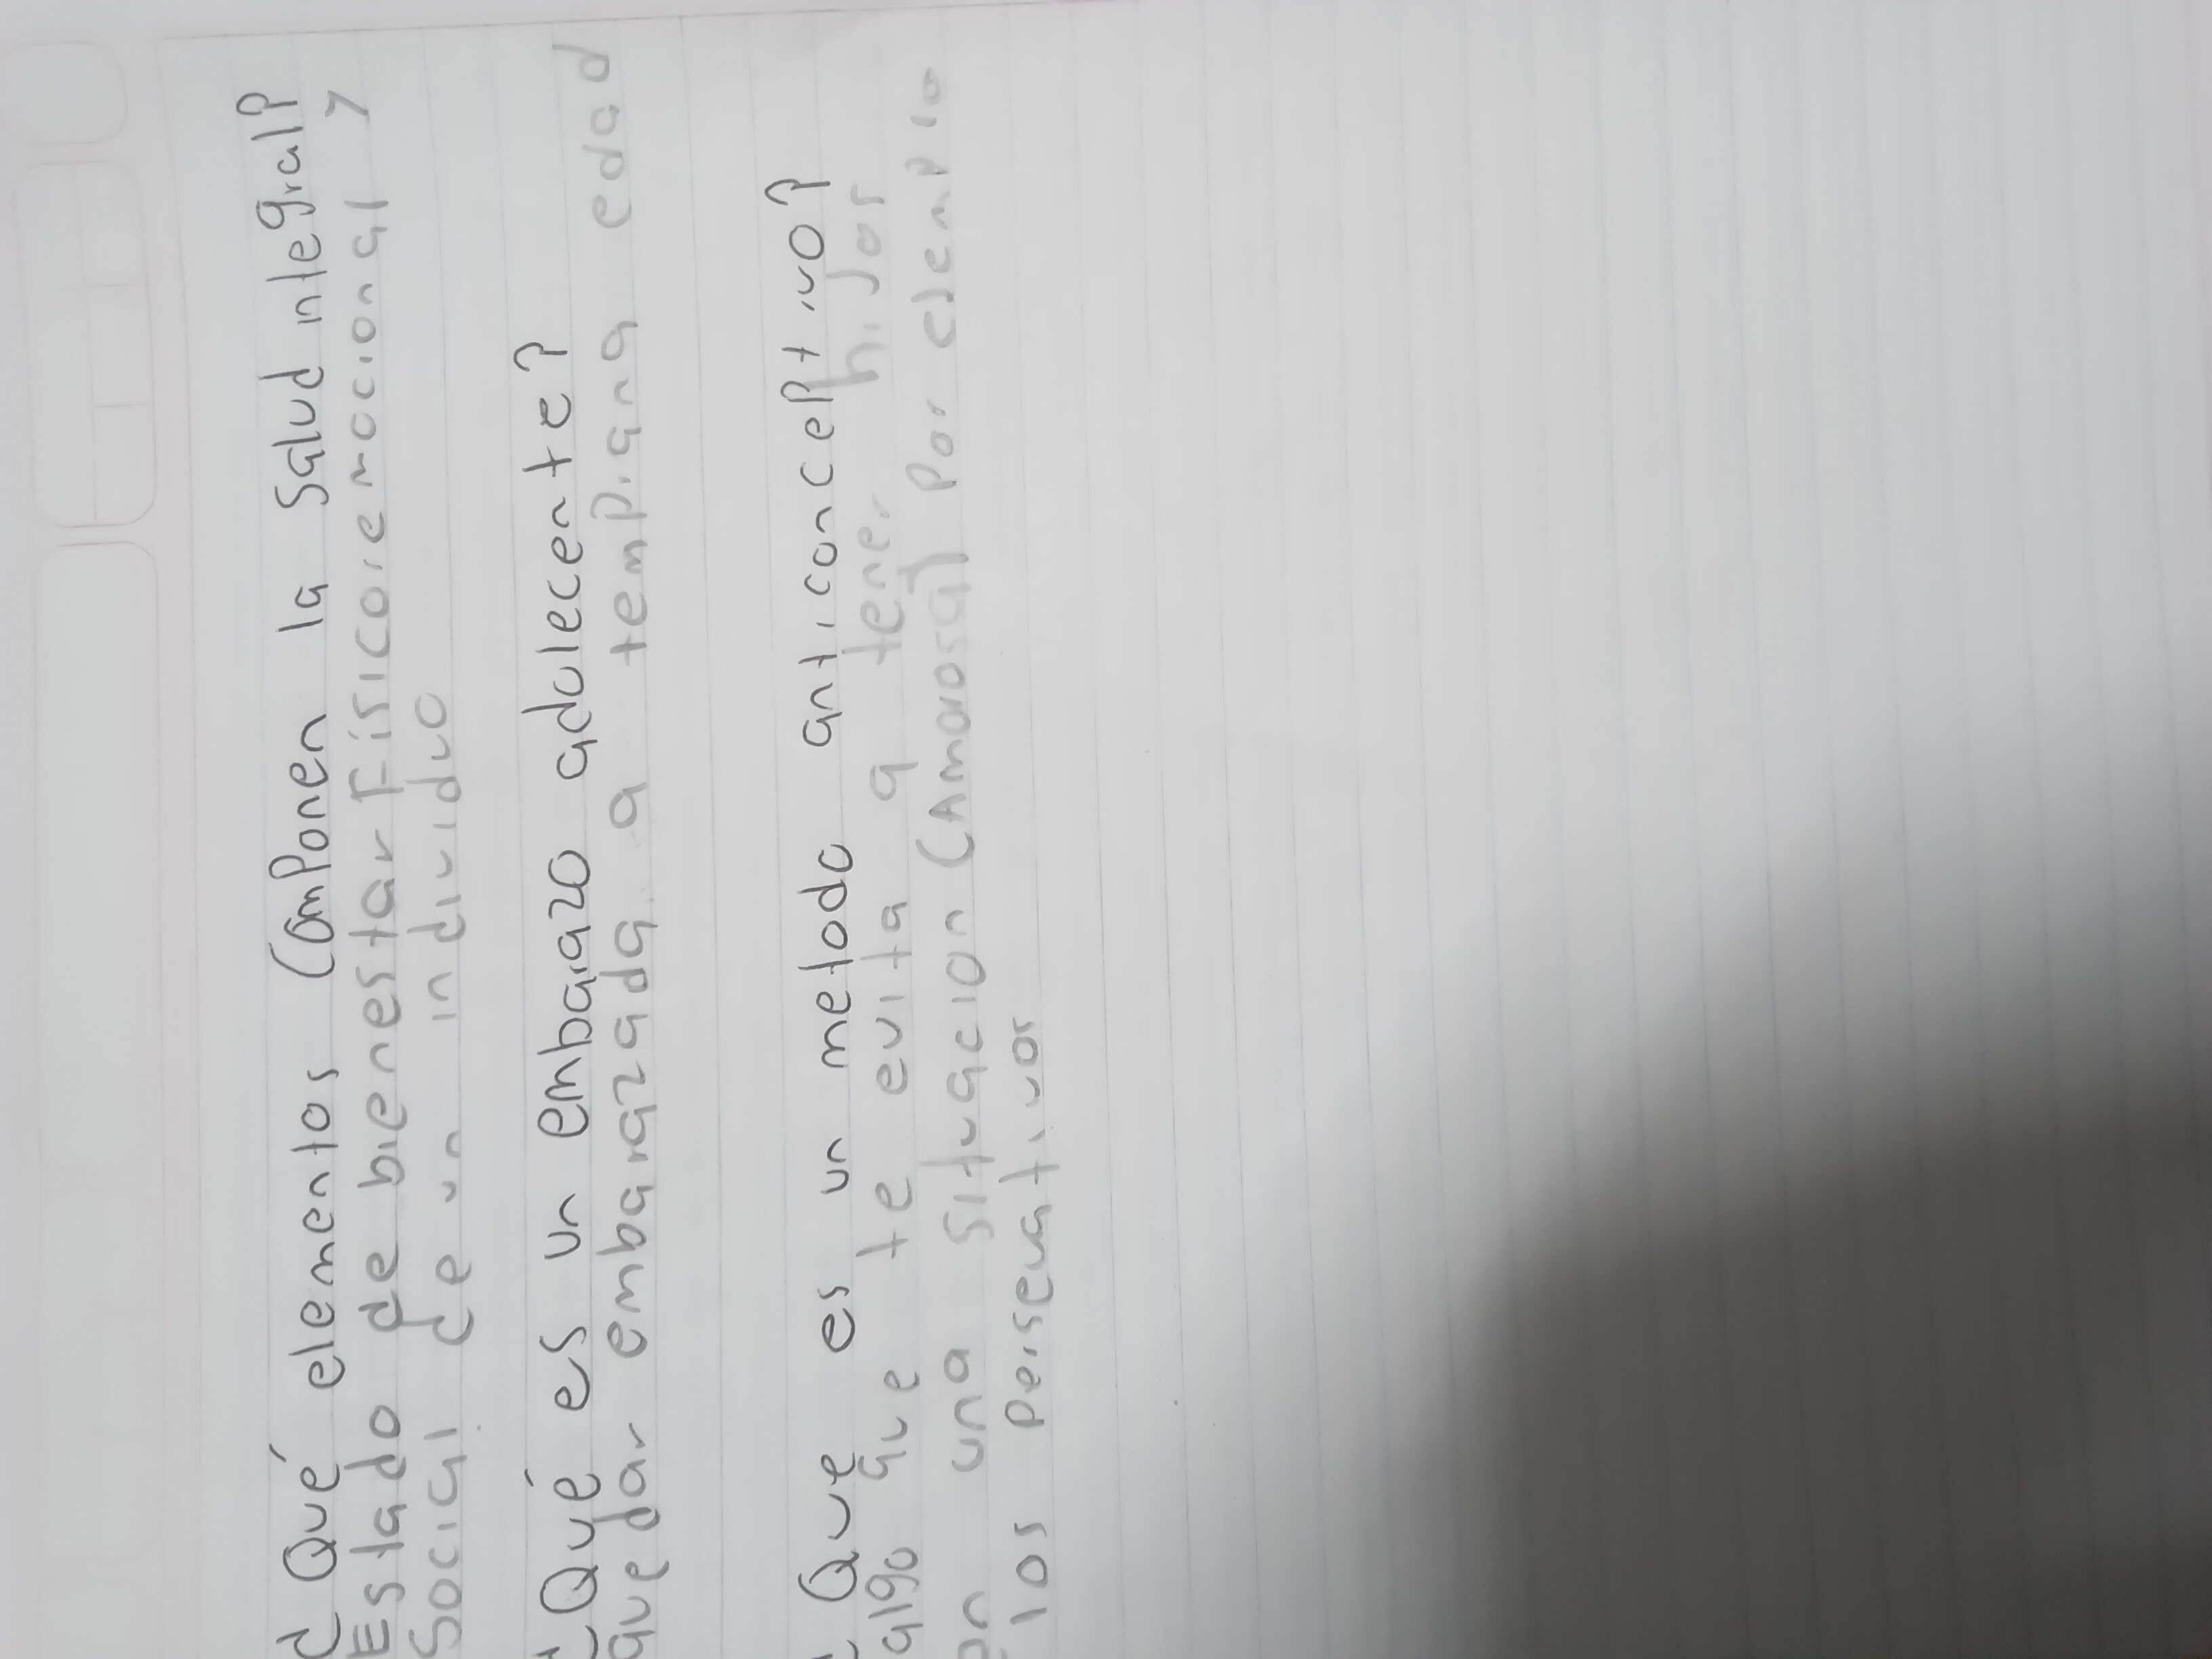 ¿Qué elementos Componen la Salud integral?
Estado de bienestar Físico, emocional y
Social de un individuo
¿Qué es un embarazo adolecente?
quedar embarazada a tempiana edad
¿Que es un metodo anticonceptivo?
algo que te evita a tener hijos
en una situacion (Amorosa) Por ejemplo
los perservativos